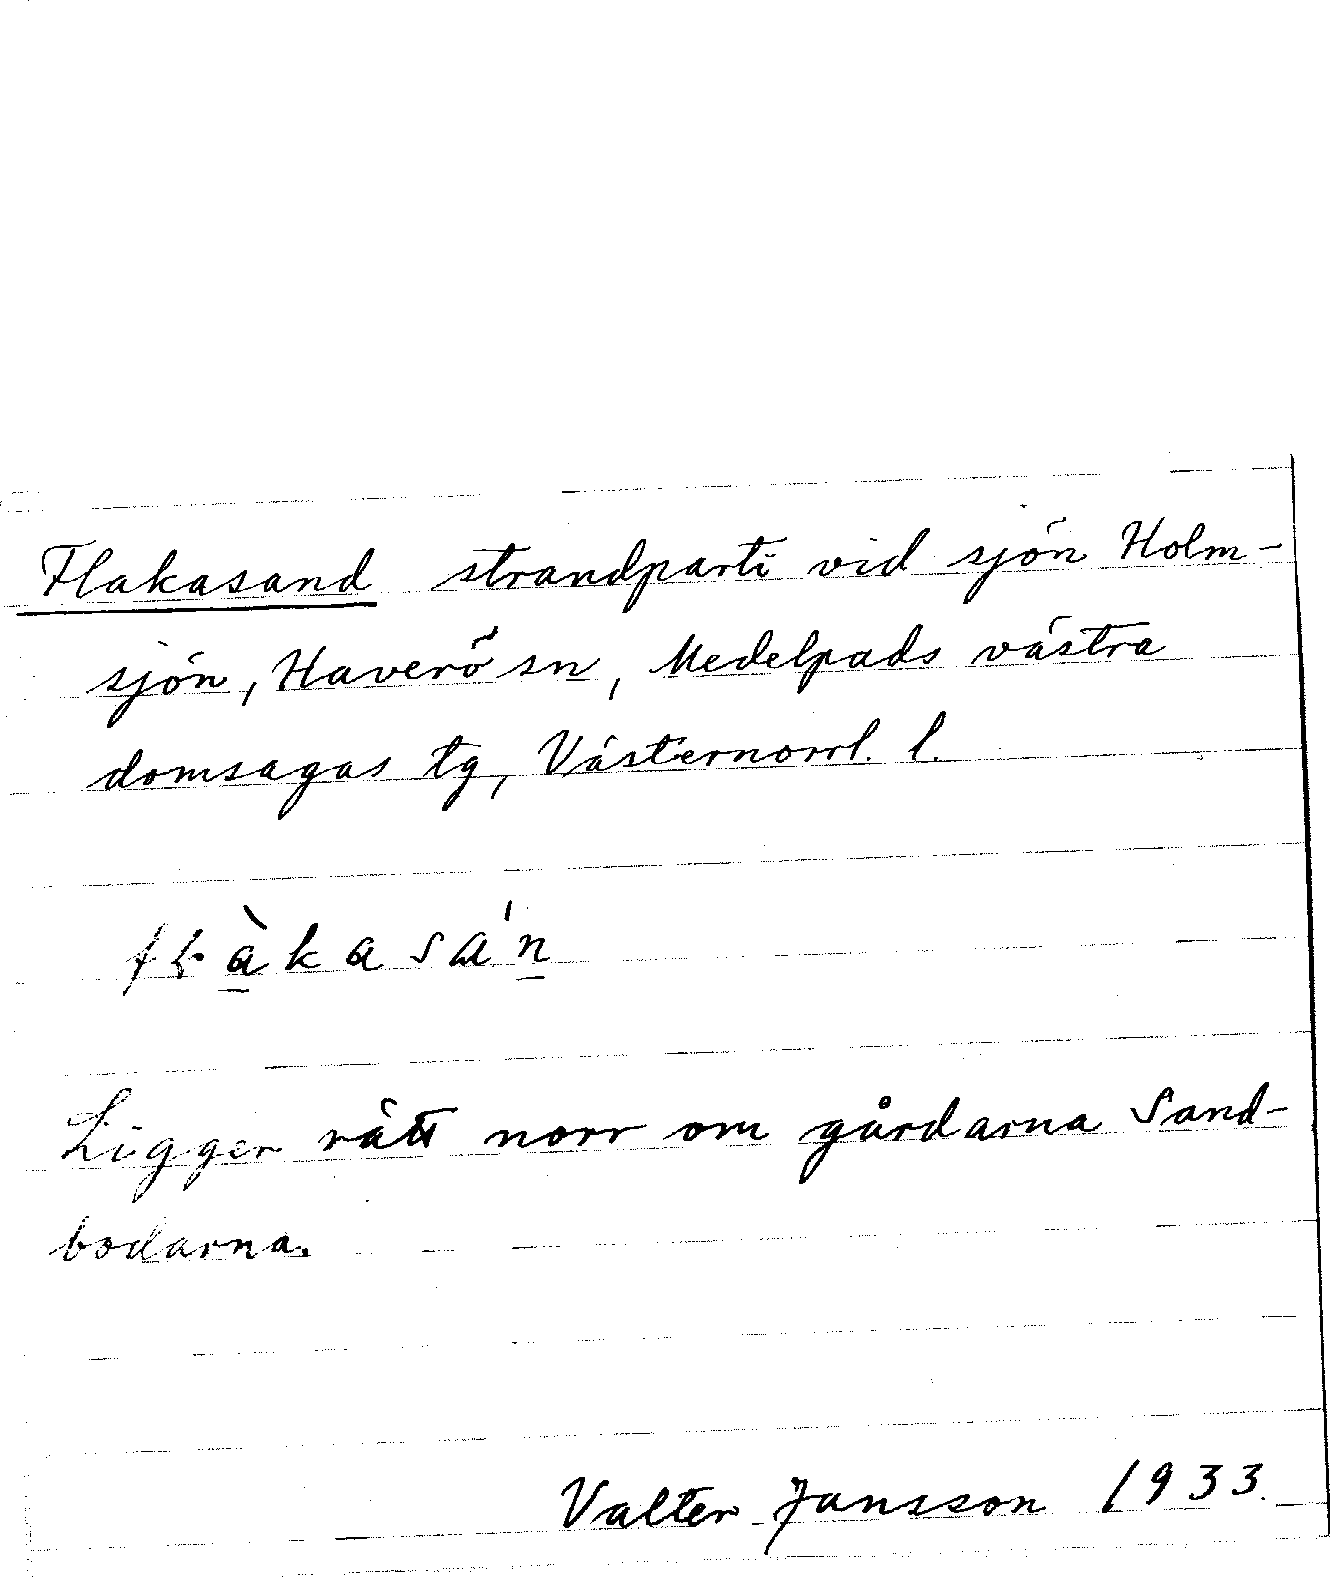 Flakasand strandparti vid sjön Holm-
sjön, Haverö sn, Medelpads västra
domsagas tg, Västernorrl. l.
Ligger rätt norr om gårdarna Sand-
bodarna.
Valter Jansson 1933.